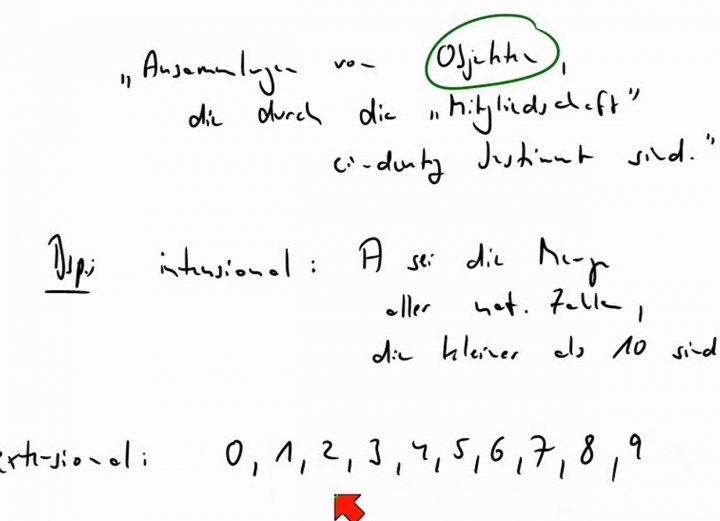 „Ansammlungen von Objekten,
die durch die „Mitgliedschaft”
eindeutig bestimmt sind.”
Bsp.: intensional: A sei die Menge
aller nat. Zahlen,
die kleiner als 10 sind
extensional: 0, 1, 2, 3, 4, 5, 6, 7, 8, 9